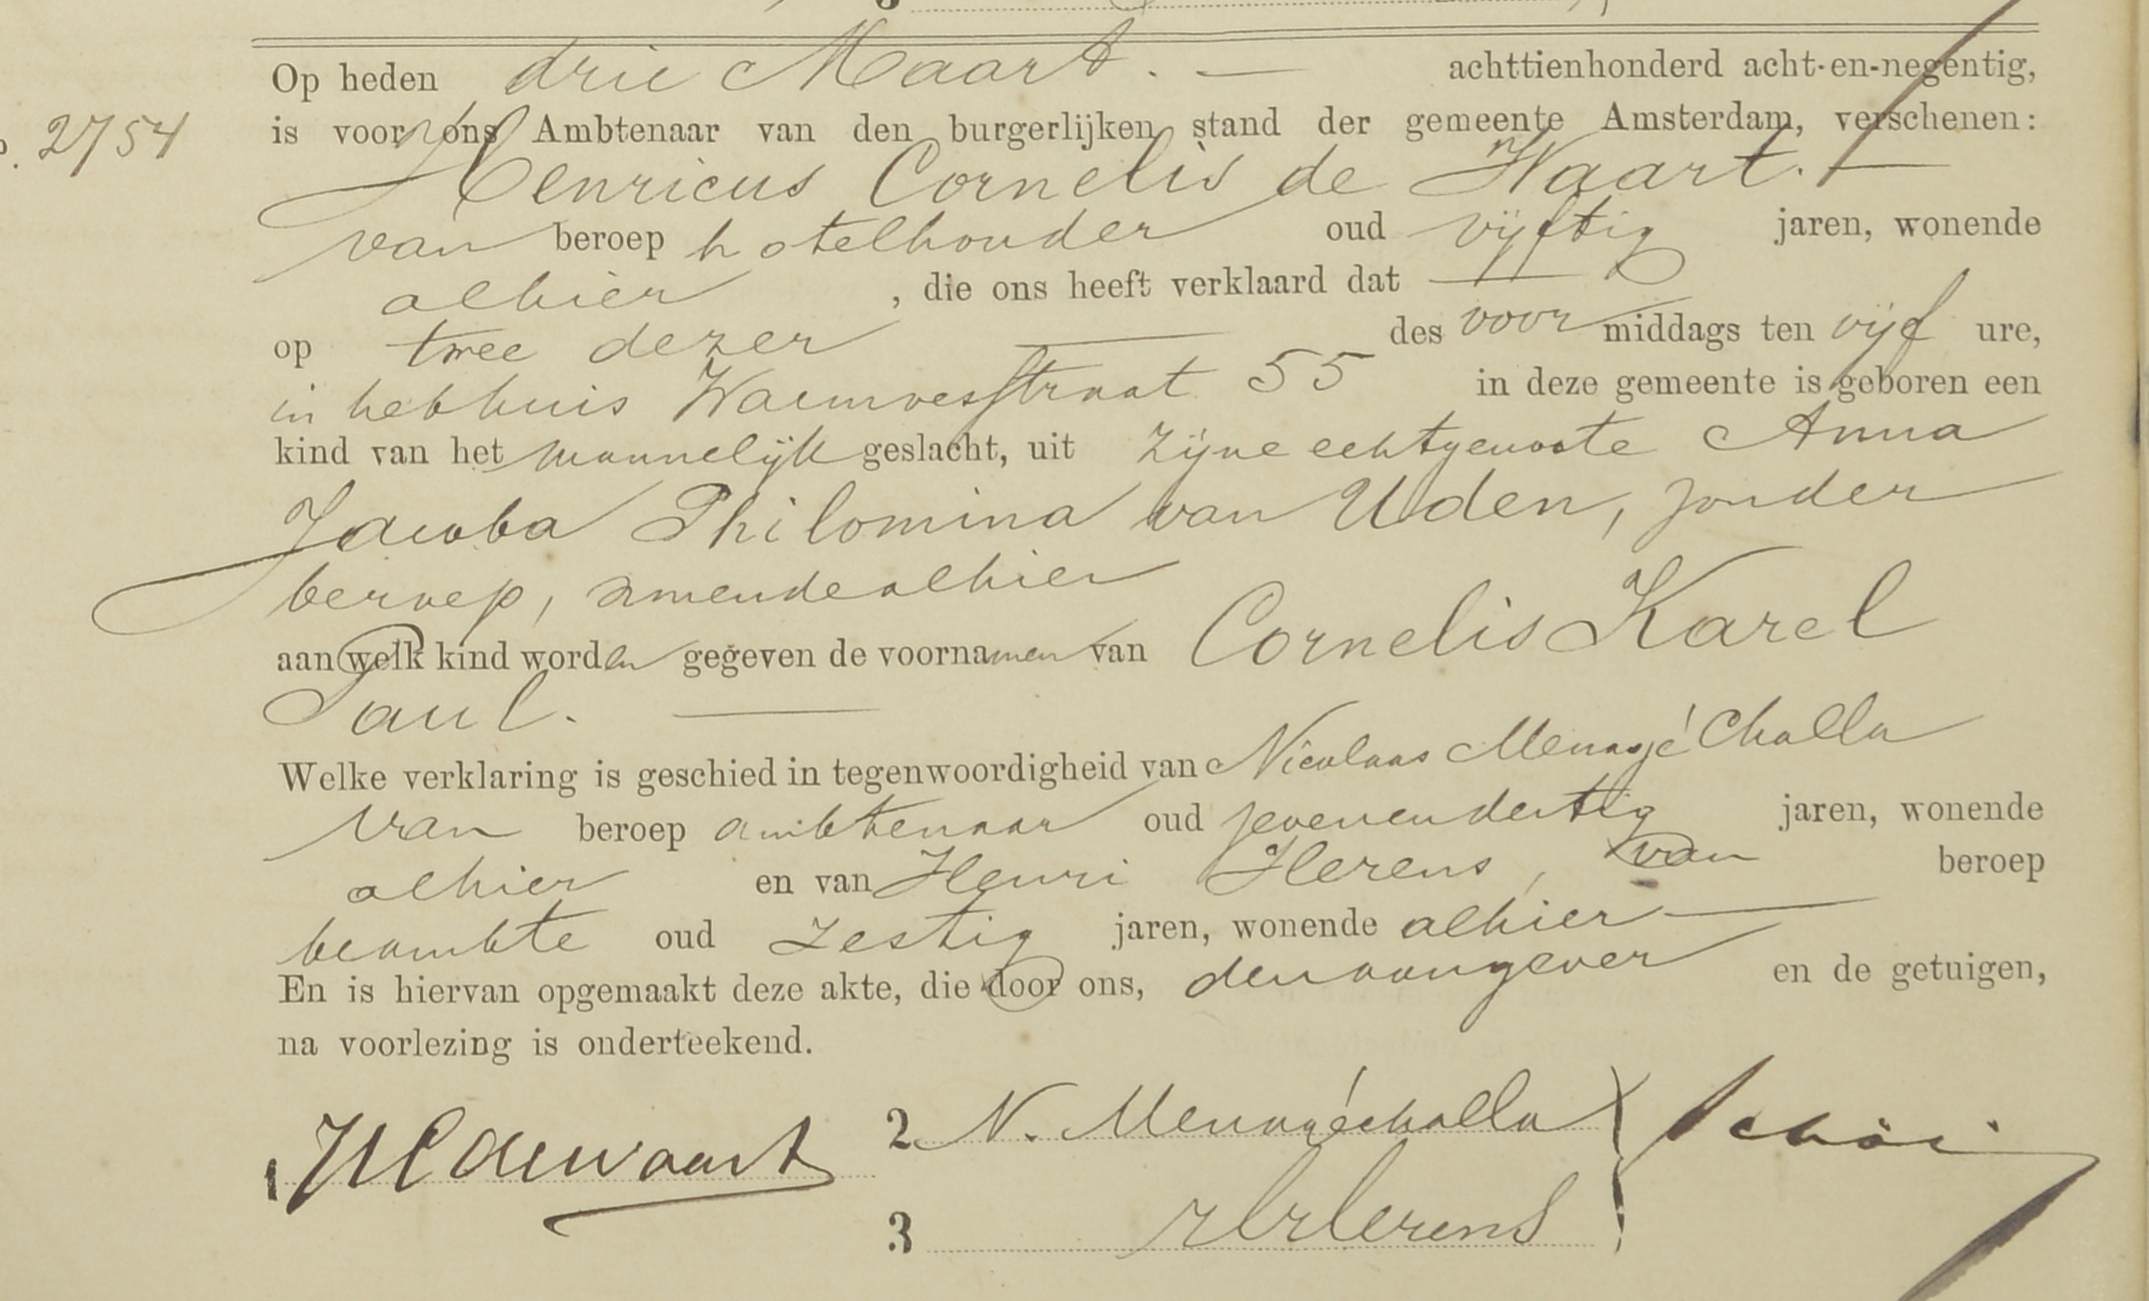 Op heden drie Maart. — achttienhonderd acht-en-negentig,
2754
is voor ons Ambtenaar van den burgerlijken stand der gemeente Amsterdam, verschenen:
Henricus Cornelis de Waart. —
van beroep hotelhouder oud vijftig jaren, wonende
alhier , die ons heeft verklaard dat —
op twee dezer — des voor middags ten vijf ure,
in het huis Warmoesstraat 55 in deze gemeente is geboren een
kind van het mannelijk geslacht, uit zijne echtgenoote Anna
Jacoba Philomina van Uden, zonder
beroep, wonende alhier
aan welk kind worden gegeven de voornamen van Cornelis Karel
Paul. —
Welke verklaring is geschied in tegenwoordigheid van Nicolaas Menagé Challa
van beroep ambtenaar oud zevenendertig jaren, wonende
alhier en van Henri Herens, van beroep
beambte oud zestig jaren, wonende alhier —
En is hiervan opgemaakt deze akte, die door ons, den aangever en de getuigen,
na voorlezing is onderteekend.
1 HCdeWaart
2 N. Menagéchalla
3 HHerens